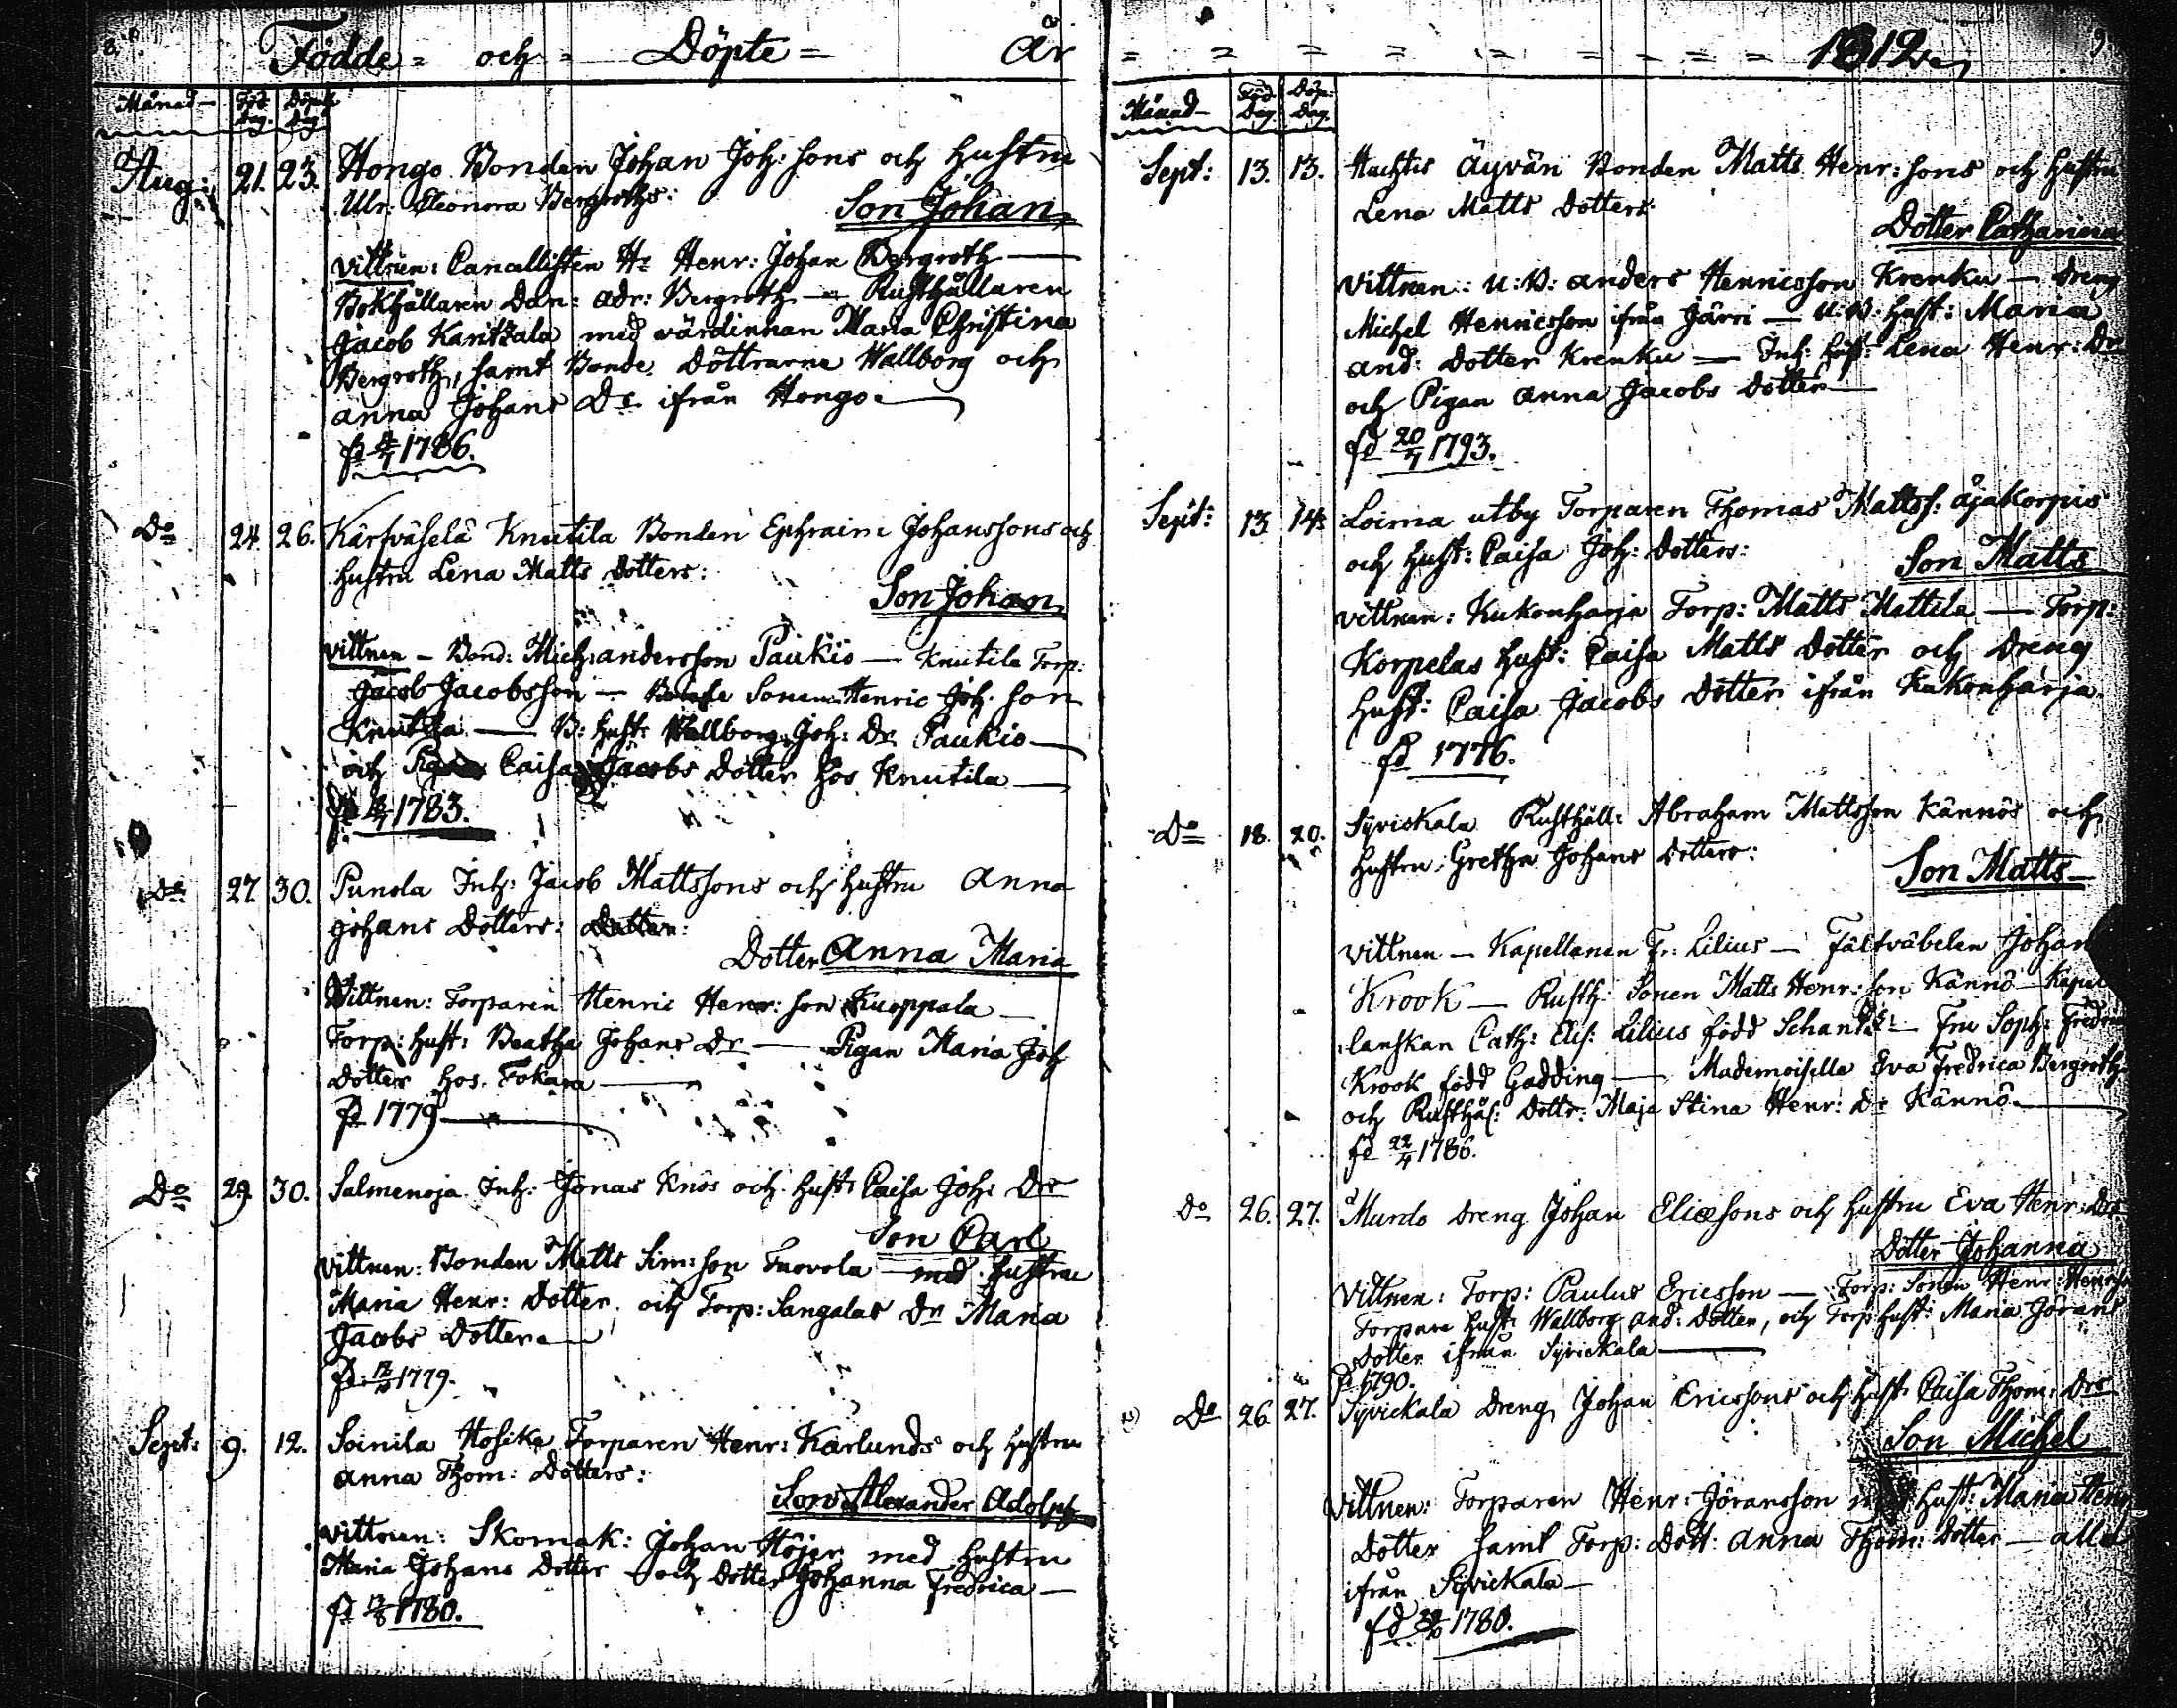 8.
Födde = och = Döpte = År
Månad Föd. Dag. Döpelse Dag
Aug: 21. 23. Hongo Bonden Johan Joh: sons och hustru
Ulr: Eleonora Bergroths:
Son Johan
Vittnen: Cancellisten Hr Henr: Johan Bergroth —
Bokhållaren Dan: Adr: Bergroth — Rusthållaren
Jacob Karitzala med värdinnan Maria Christina
Bergroth, samt Bonde Döttrarne Wallborg och
Anna Johans Dr ifrån Hongo.
1786.
Do 24. 26. Kärfväselä Knutila Bonden Ephraim Johanssons och
hustru Lena Matts Dotters:
Son Johan
Vittnen — Bond: Mich: Andersson Paukio — Knutila Torp:
Jacob Jacobsson — Bonde Sonen Henric Joh: son
Knutila — B: hust: Wallborg Joh: Dr Paukio —
och Pigan Caisa Jacobs Dotter hos Knutila —
1783.
Do 27. 30. Punola Inh: Jacob Mattssons och hustru Anna
Johans Dotters:
Dotter Anna Maria
Vittnen: Torparen Henric Henr: son Kuoppala —
Torp: hust: Beatha Johans Dr — Pigan Maria Joh
Dotter hos Tokara —
fd 1779
Do 29. 30. Salmenoja Inh: Jonas Knös och hust: Caisa Joh: Drs
Son Carl
Vittnen: Bonden Matts Sim: son Tuovola med hustru
Maria Henr: Dotter och Torp: Sangalas Dr Maria
Jacobs Dotter
fd: 1779.
Sept: 9. 12. Soinila Hosike Torparen Henr: Karlunds och hustru
Anna Thom: Dotters:
Son Alexander Adolph
Vittnen: Skomak: Johan Höjer med hustru
Maria Johans Dotter och Dotter Johanna Fredrica —
1780.
1812. 9
Månad Föd. Dag. Döp: Dag.
Sept: 13. 13. Huchtis Äyväri Bonden Matts Henr: sons och hustru
Lena Matts Dotters
Dotter Catharina
Vittnen: U: B: Anders Henricsson Krenku — Dreng
Michel Henricsson ifrån Järri — U: B: hust: Maria
And: Dotter Krenku — Inh: hust: Lena Henr: Dr
och Pigan Anna Jacobs Dotter —
fd 20/7 1793.
Sept: 13 14. Loima utby Torparen Thomas Mattss: Äjakorpis
och hust: Caisa Joh: Dotters:
Son Matts
Vittnen: Kukonharja Torp: Matts Mattila — Torp:
Korpelas hust: Caisa Matts Dotter och Dreng
hust: Caisa Jacobs Dotter ifrån Kukonharja.
fd 1776.
Do 18. 20. Syviskala Rusthåll: Abraham Mattsson Kännös och
hustru Gretha Johans Dotters:
Son Matts —
Vittnen — Kapellanen Fr: Lilius — Fältväbelen Johan
Krook — Rusth: Sonen Matts Henr: son Kännö — Kapel
lanskan Cath: Elis: Lilius född — Fru Soph: Fredrica
Krook född Gadding — Mademoiselle Eva Fredrica Bergroth
och Rusthål: Dottr: Maja Stina Henr: Dr Kännö —
fd 22/4 1786.
Do 26. 27. Murdo Dreng Johan Eliæsons och hustru Eva Henr: Drs
Dotter Johanna
Vittnen: Torp: Paulus Ericsson — Torp: Sonen Henr: Henrsson
Torpare hust: Wallborg And: Dotter, och Torp: hust: Maria Görans
Dotter ifrån Syvickala —
fd 1790.
Do 26. 27. Syvickala Dreng Johan Ericssons och hust: Caisa Thom: Drs
Son Michel
Vittnen: Torparen Henr: Jöransson hust: Maria Henr
Dotter samt Torp: Dott: Anna Thom: Dotter — alla
ifrån Syvickala —
fd 1780.